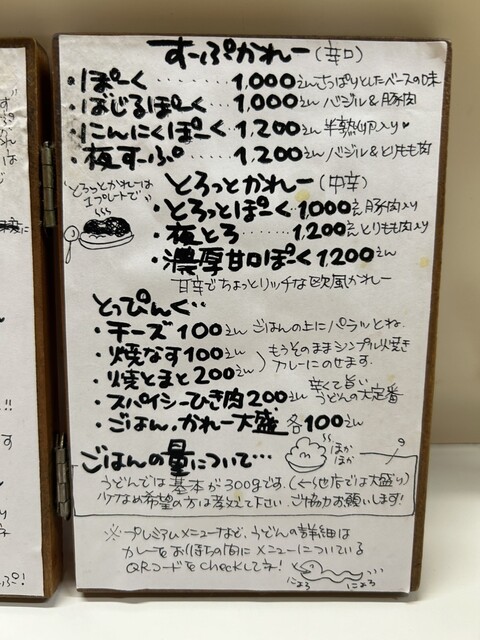 すーぷかれー(辛口)
・ぽーく……1,000えん さっぱりとしたベースの味
・ばじるぽーく…1,000えん バジル&豚肉
・にんにくぽーく・1,200えん 半熟卵入り♥
・夜すーぷ…1,200えん バジル&とりもも肉
"とろっとかれーは
1プレートで"
とろっとかれー(中辛)
・とろっとぽーく1,000えん豚肉入り
・夜とろ…1,200えんとりもも肉入り
・濃厚甘口ぽーく1200えん
甘辛でちょっとリッチな欧風かれー
とっぴんぐ…
・チーズ100えん ごはんの上にパラッとね.
・焼なす100えん
・焼とまと200えん
もうそのままシンプル焼き
カレーにのせます。
・スパイシーひき肉200えん 辛くて旨い
うどんの大定番
・ごはん.かれー大盛 各100えん
ごはんの量について…
ほか
ほか
うどんでは基本が300gです。(←他店では大盛り)
少なめ希望の方は教えて下さい。ご協力お願いします!
※プレミアムメニューなど、うどんの詳細は
カレーをお待ちの間にメニューについている
QRコードをCheckしてネ!
にょろ にょろ